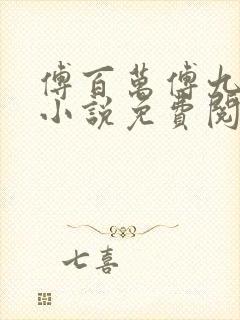 傅百萬傅九
小說免費閱
七喜